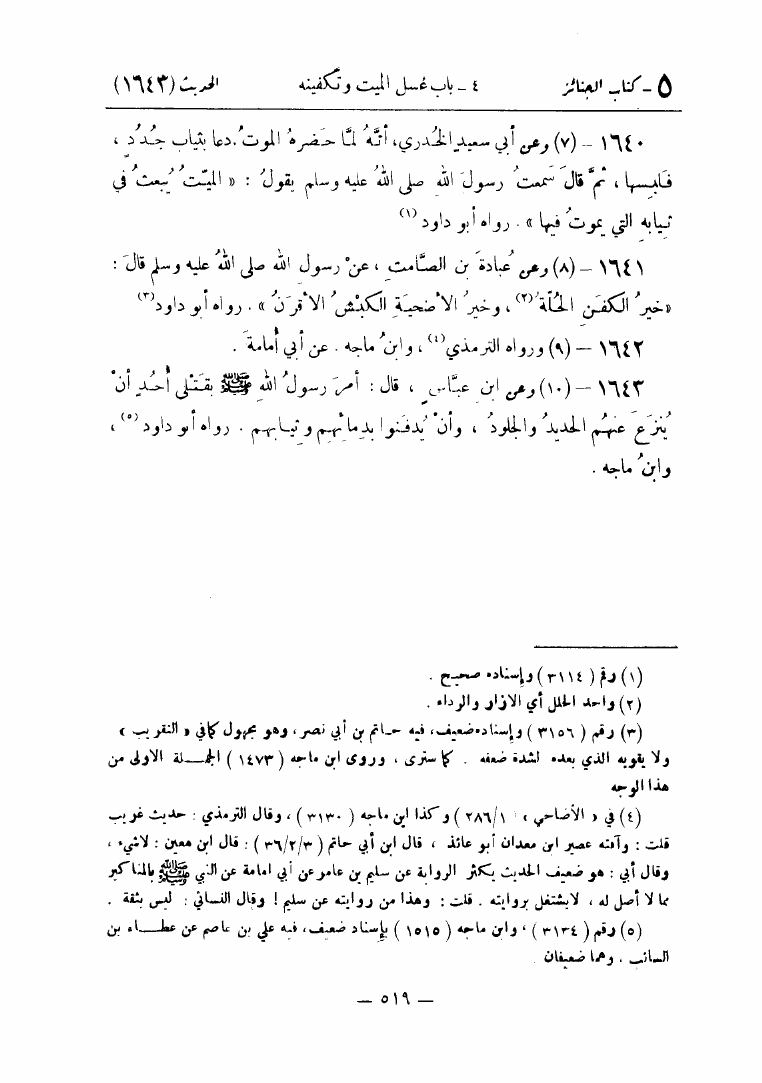 ٥ - كتاب الجنائز ٤ - باب غسل الميت وتكفينه الحديث (١٦٤٣)
١٦٤٠ - (٧) وعن أبي سعيدٍ الخُدري، أنَّهُ لمَّا حضَرهُ الموتُ. دعا بثياب جُدُدٍ ،
فلبِسها ، ثمَّ قالَ سَمعتُ رسولَ اللهِ صلى اللهُ عليه وسلم يقولُ : « الميّتُ يُبعثُ في
ثيابِهِ التي يموتُ فيها » . رواه أبو داود(١)
١٦٤١ - (٨) وعن عُبادةَ بن الصَّامتِ ، عنْ رسول الله صلى اللهُ عليه وسلم قالَ :
«خيرُ الكفَنِ الحُلّةُ(٢) ، وخيرُ الأضحيَةِ الكبْشُ الأقرَنُ » . رواه أبو داود(٣)
١٦٤٢ - (٩) ورواه الترمذي(٤) ، وابنُ ماجه . عن أبي أُمامةَ .
١٦٤٣ - (١٠) وعن ابنِ عبَّاسٍ ، قال : أمرَ رسولُ اللهِ ﷺ بقتْلى أُحُدٍ أنْ
يُنزَعَ عنهُم الحديدُ والجلودُ ، وأنْ يُدفَنوا بدِمائِهم وثيابهم . رواه أبو داود(٥) ،
وابنُ ماجه .
(١) رقم ( ٣١١٤ ) وإسناده صحيح .
(٢) واحد الحلل أي الازار والرداء .
(٣) رقم ( ٣١٥٦ ) وإسناده ضعيف، فيه حاتم بن أبي نصر، وهو مجهول كما في « التقريب »
ولا يقويه الذي بعده لشدة ضعفه . كما سترى ، وروى ابن ماجه ( ١٤٧٣ ) الجملة الاولى من
هذا الوجه
(٤) في « الأضاحي » ( ٢٨٦/١ ) وكذا ابن ماجه ( ٣١٣٠ ) ، وقال الترمذي : حديث غريب
قلت : وآفته عفير ابن معدان أبو عائذ ، قال ابن أبي حاتم ( ٣٦/٢/٣ ) : قال ابن معين : لاشيء ،
وقال أبي : هو ضعيف الحديث يكثر الرواية عن سليم بن عامر عن أبي امامة عن النبي ﷺ بالمناكير
مما لا أصل له ، لايشتغل بروايته . قلت : وهذا من روايته عن سليم ! وقال النسائي : ليس بثقة .
(٥) رقم ( ٣١٣٤ ) ، وابن ماجه ( ١٥١٥ ) بإسناد ضعيف، فيه علي بن عاصم عن عطاء بن
السائب . وهما ضعيفان
— ٥١٩ —